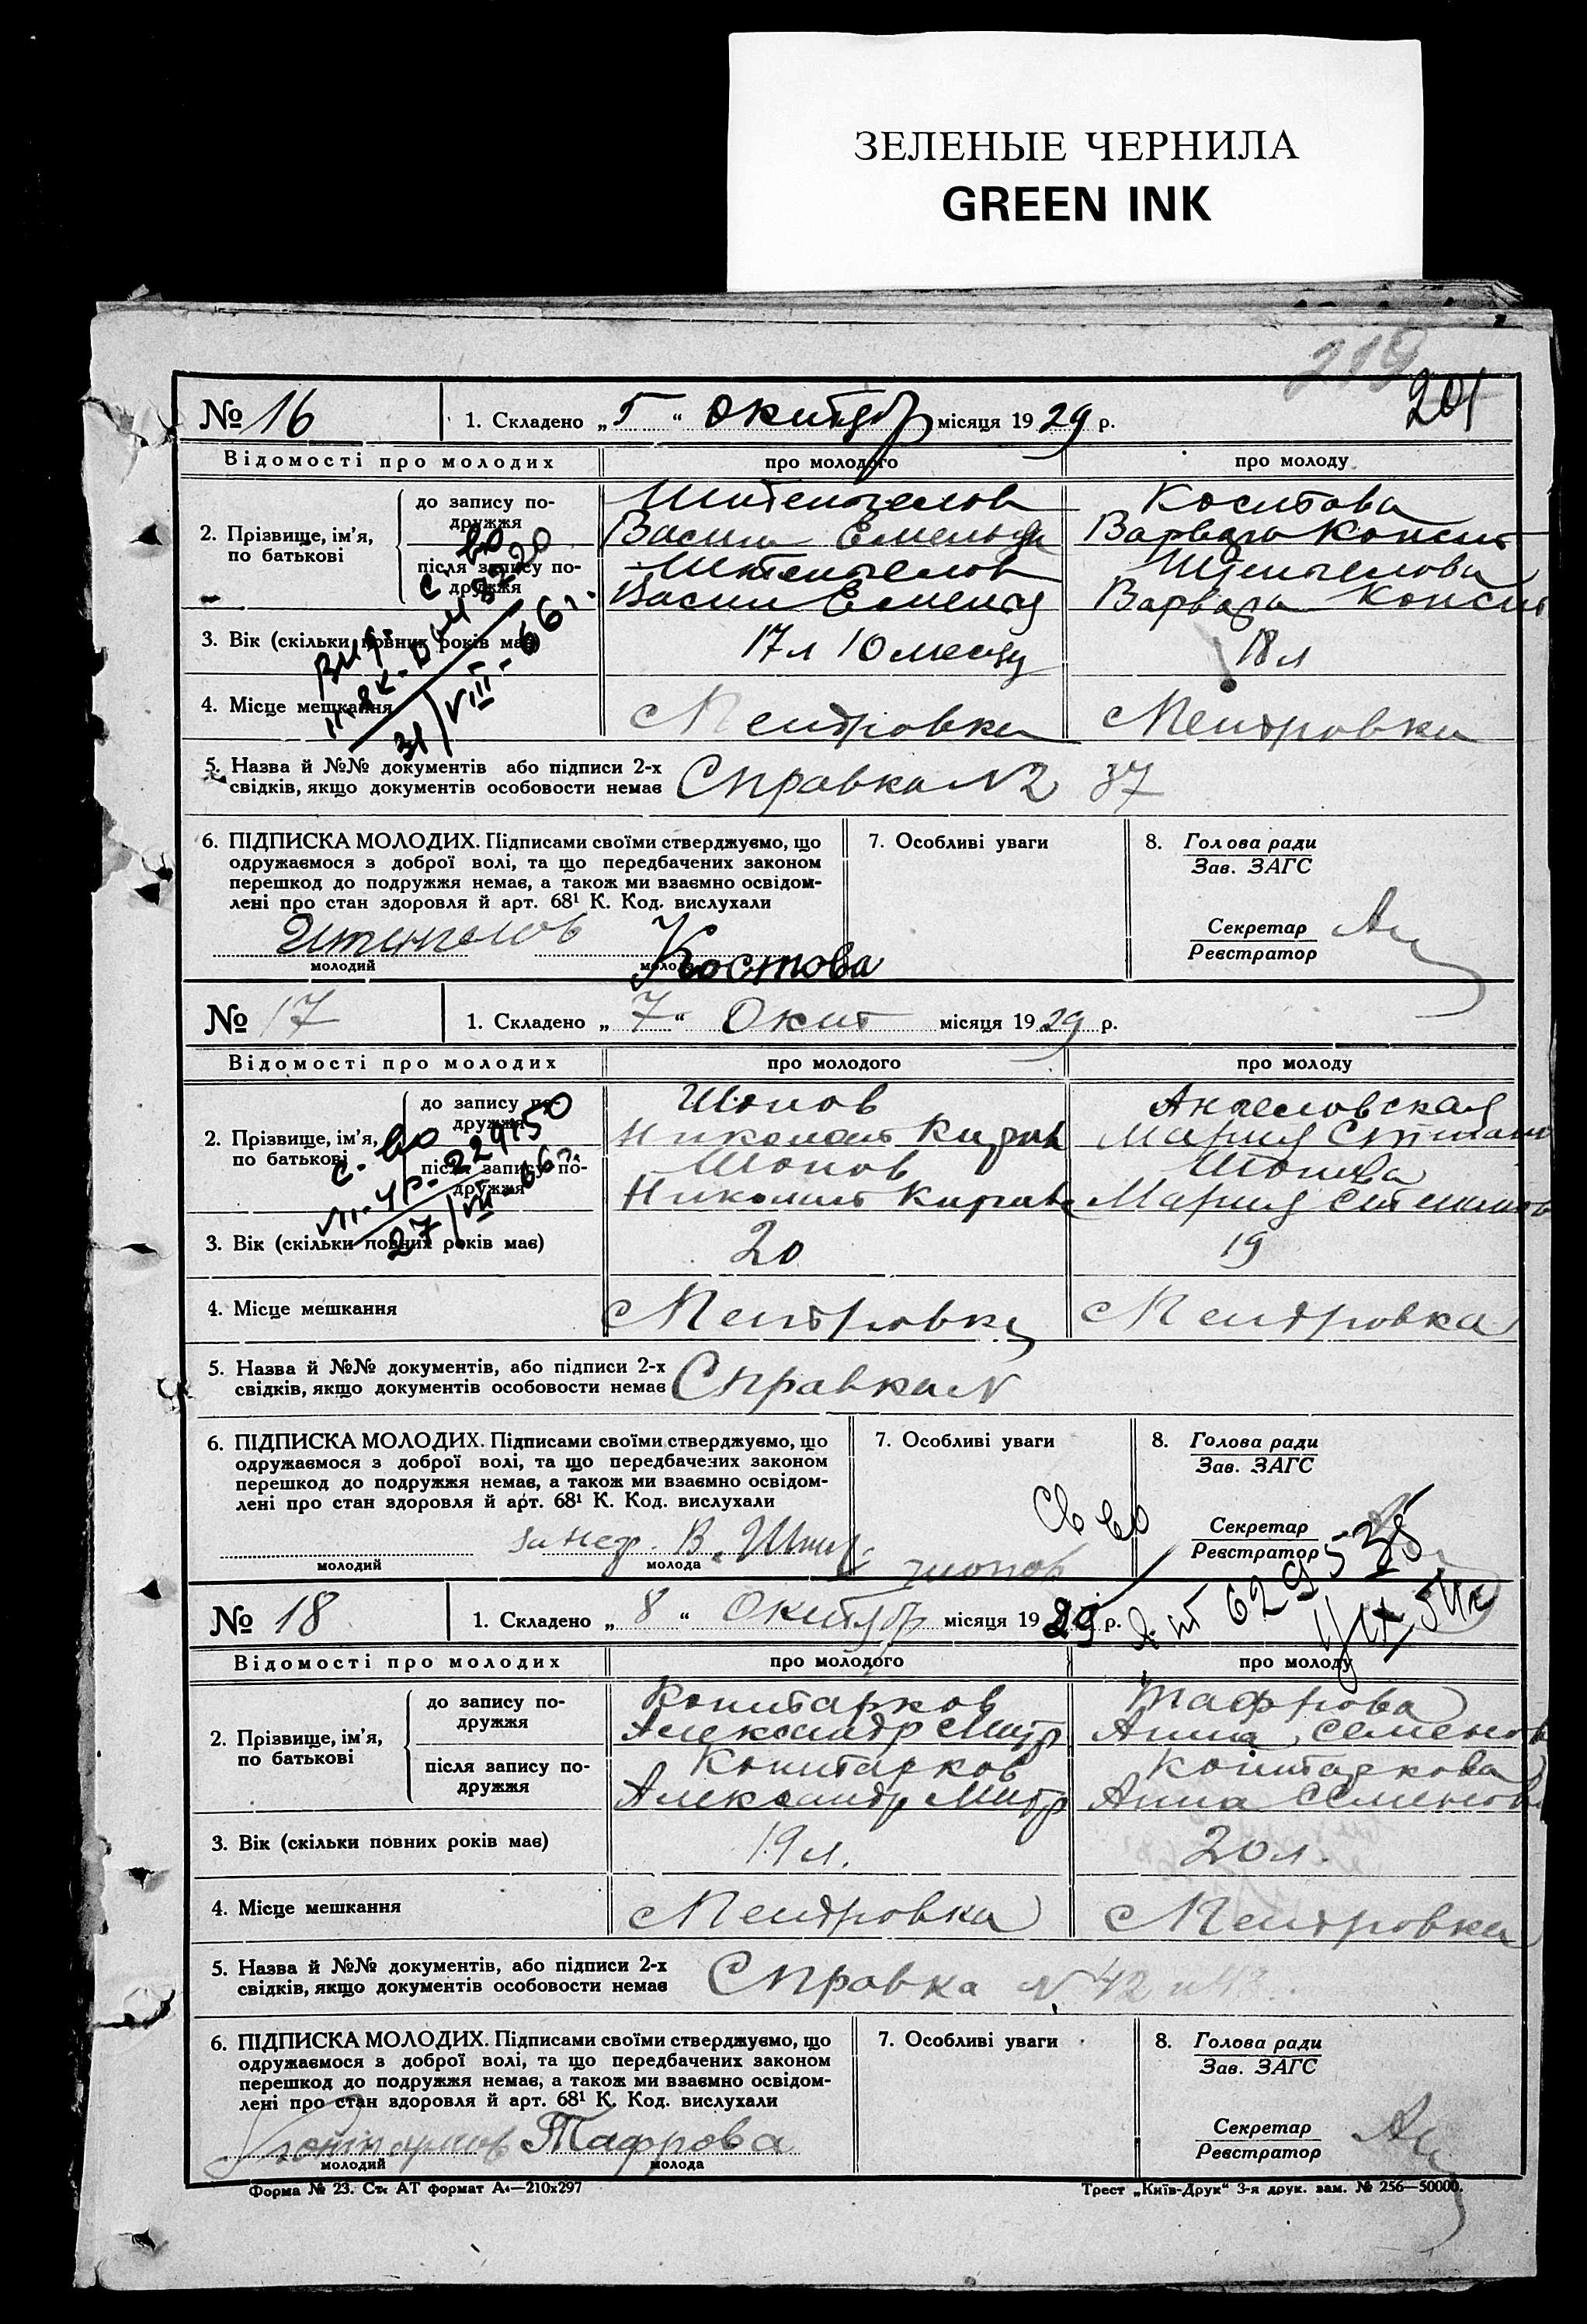 ЗЕЛЕНЫЕ ЧЕРНИЛА
GREEN INK
219
201
№ 16 1. Складено „5“ Октябр місяця 1929 р.
Відомості про молодих про молодого про молоду
2. Прізвище, ім’я, по батькові
до запису подружжя
Костова
Васили Емельян Варвара Конст
після запису подружжя
Васили Емельян Варвара Конст
3. Вік (скільки повних років має) 17 л 10 месяц 18 л
31/VIII-66г.
4. Місце мешкання с Петровка Петровка
5. Назва й №№ документів або підписи 2-х
свідків, якщо документів особовости немає Справка N 2 37
6. ПІДПИСКА МОЛОДИХ. Підписами своїми стверджуємо, що 7. Особливі уваги 8. Голова ради
одружаємося з доброї волі, та що передбачених законом Зав. ЗАГС
перешкод до подружжя немає, а також ми взаємно освідом-
лені про стан здоровля й арт. 68¹ К. Код. вислухали
Секретар
Костова
молодий молода Реєстратор
№ 17 1. Складено „7“ Окт місяця 1929 р.
Відомості про молодих про молодого про молоду
2. Прізвище, ім’я, по батькові
до запису подружжя
Шопов Ангеловская
Николай Кирил Мария Степан
після запису подружжя
Шопов Шопова
Николай Кирил Мария Степанов
с. во
27/VII-66г.
3. Вік (скільки повних років має) 20 19
4. Місце мешкання с Петровка с Петровка
5. Назва й №№ документів, або підписи 2-х
свідків, якщо документів особовости немає Справка N
6. ПІДПИСКА МОЛОДИХ. Підписами своїми стверджуємо, що 7. Особливі уваги 8. Голова ради
одружаємося з доброї волі, та що передбачених законом Зав. ЗАГС
перешкод до подружжя немає, а також ми взаємно освідом-
лені про стан здоровля й арт. 68¹ К. Код. вислухали
Св во
Секретар
за нег. В.
молодий молода Шопов Реєстратор
№ 18 1. Складено „8“ Октябр місяця 1929 р.
Відомості про молодих про молодого про молоду
2. Прізвище, ім’я, по батькові
до запису подружжя
Копитарков Тафрова
Александр Митр Анна Семенов
після запису подружжя
Копитарков Копитаркова
Александр Митр Анна Семенов
3. Вік (скільки повних років має) 19 л. 20 л.
4. Місце мешкання с Петровка с Петровка
5. Назва й №№ документів, або підписи 2-х
свідків, якщо документів особовости немає Справка N 42 и 43
6. ПІДПИСКА МОЛОДИХ. Підписами своїми стверджуємо, що 7. Особливі уваги 8. Голова ради
одружаємося з доброї волі, та що передбачених законом Зав. ЗАГС
перешкод до подружжя немає, а також ми взаємно освідом-
лені про стан здоровля й арт. 68¹ К. Код. вислухали
Секретар
Тафрова
молодий молода Реєстратор
Форма № 23. Ст. АТ формат А₄—210х297 Трест „Київ-Друк“ 3-я друк. зам. № 256—50000.